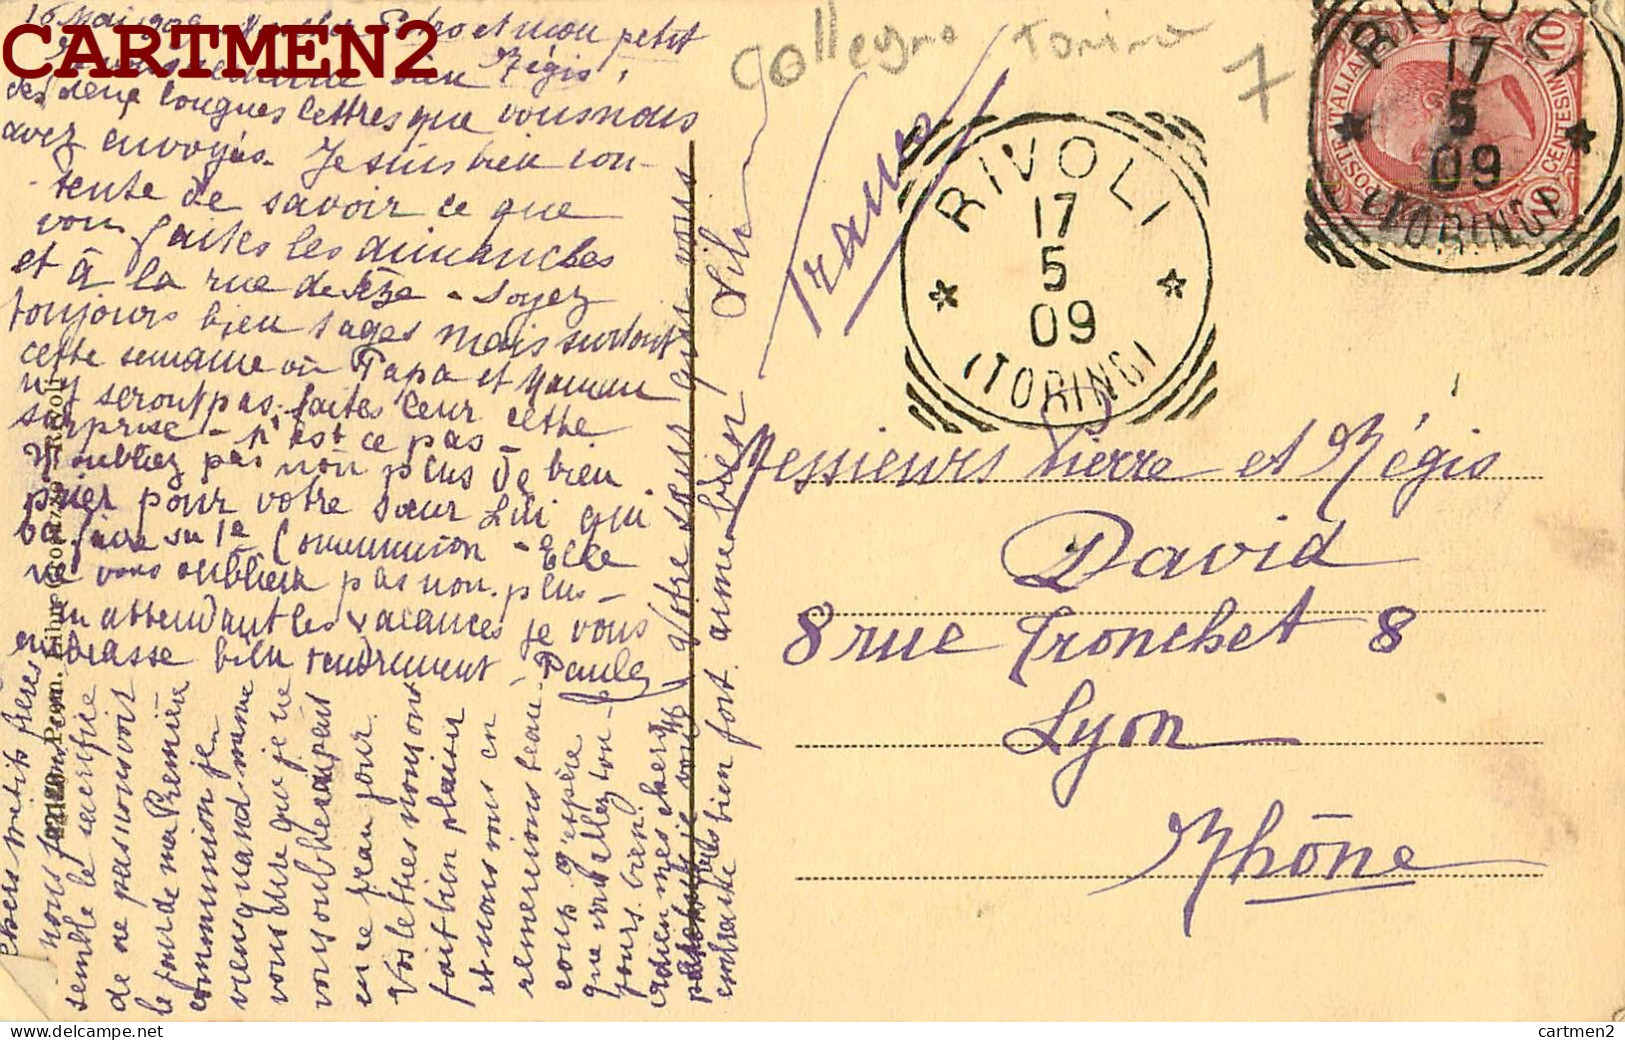 CARTMEN2
16 Mai 1909 Mon cher Pedro et mon petit
Régis,
Je vous remercie bien
des deux longues lettres que vous nous
avez envoyés. Je suis bien con-
tente de savoir ce que
vous faites les dimanches
et à la rue de Sèze - Soyez
toujours bien sages mais surtout
cette semaine où Papa et Maman
n'y seront pas. faites leur cette
surprise - n'est ce pas -
N'oubliez pas non plus de bien
prier pour votre sœur Lili qui
va faire sa 1e Communion - Elle
ne vous oubliera pas non plus -
en attendant les vacances je vous
embrasse bien tendrement - Paule
Chers petits frères
nous
semble le sacrifice
de ne pas vous voir
le jour de ma Première
communion je
viens quand même
vous dire que je ne
vous oublierai pas
en ce beau jour.
Vos lettres nous ont
fait bien plaisir
et nous vous en
remercions beau-
coup j'espère
que vous allez tou-
jours bien.
Adieu mes chers
petits frères je vous
embrasse bien fort
Votre sœur qui vous
aime bien Lili
Collegno Torino
7
France
RIVOLI
17
5
09
(TORINO)
RIVOLI
17
5
09
(TORINO)
POSTE ITALIANE
CENTESIMI 10
Messieurs Pierre et Régis
David
8 rue Tronchet 8
Lyon
Rhône
cartmen2